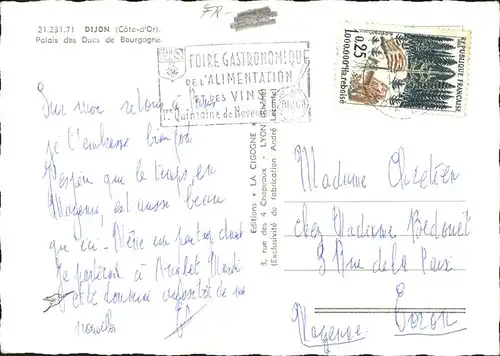 FR-
21.231.71 DIJON (Côte-d'Or).
Palais des Ducs de Bourgogne.
FOIRE GASTRONOMIQUE
DE L'ALIMENTATION
ET DES VINS
1re Quinzaine de Novembre
DIJON
0,25
1.000.000e Ha reboisé
REPUBLIQUE FRANÇAISE
Sur mon retour à Paris
je t'embrasse bien fort
J'espère que le temps en
Mayenne, est aussi beau
qu'ici - Même un peu trop chaud
Je posterai à Mardi
je te donnerai aussitôt de mes
nouvelles
Editions "LA CIGOGNE"
3, rue des 4 Chapeaux - LYON (Rhône)
(Exclusivité de fabrication André Leconte)
Madame Chrétien
chez Madame Bedouet
31 Rue de la Paix
Evron
Mayenne